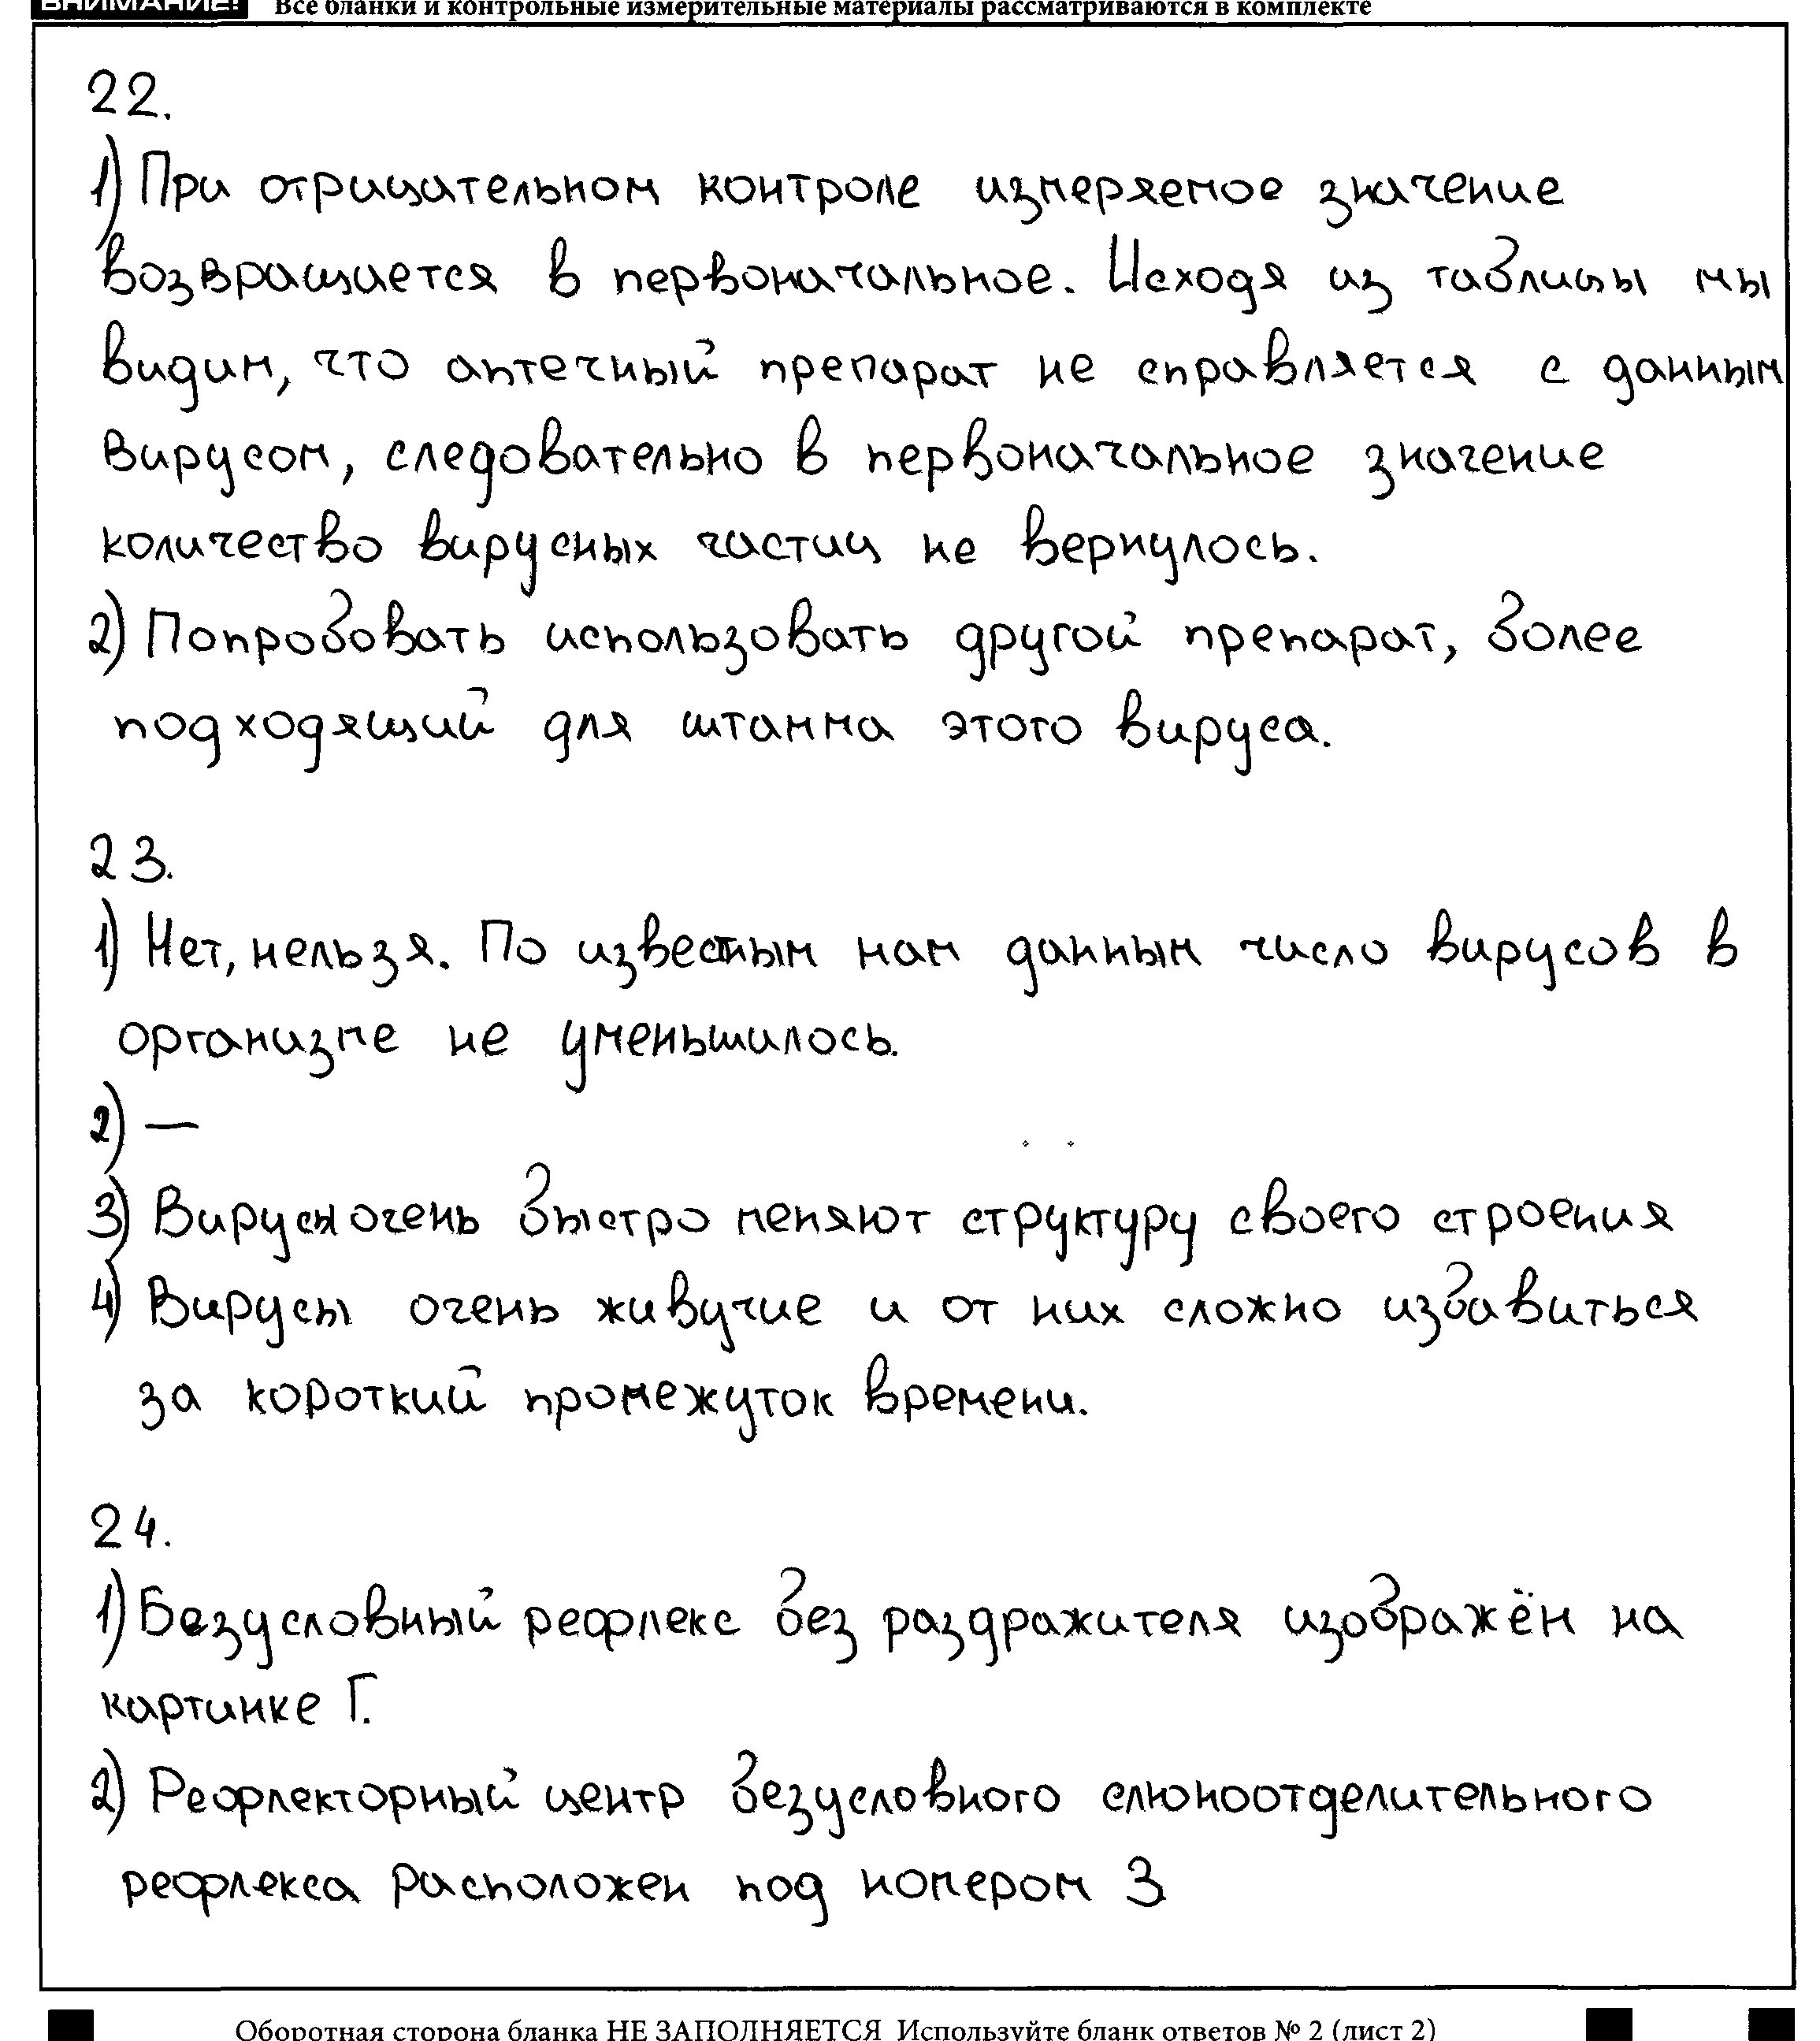 ВНИМАНИЕ! Все бланки и контрольные измерительные материалы рассматриваются в комплекте
22.
1) При отрицательном контроле измеряемое значение
возвращается в первоначальное. Исходя из таблицы мы
видим, что аптечный препарат не справляется с данным
вирусом, следовательно в первоначальное значение
количество вирусных частиц не вернулось.
2) Попробовать использовать другой препарат, более
подходящий для штамма этого вируса.
23.
1) Нет, нельзя. По известным нам данным число вирусов в
организме не уменьшилось.
2) —
3) Вирусы очень быстро меняют структуру своего строения
4) Вирусы очень живучие и от них сложно избавиться
за короткий промежуток времени.
24.
1) Безусловный рефлекс без раздражителя изображён на
картинке Г.
2) Рефлекторный центр безусловного слюноотделительного
рефлекса расположен под номером 3
Оборотная сторона бланка НЕ ЗАПОЛНЯЕТСЯ Используйте бланк ответов № 2 (лист 2)